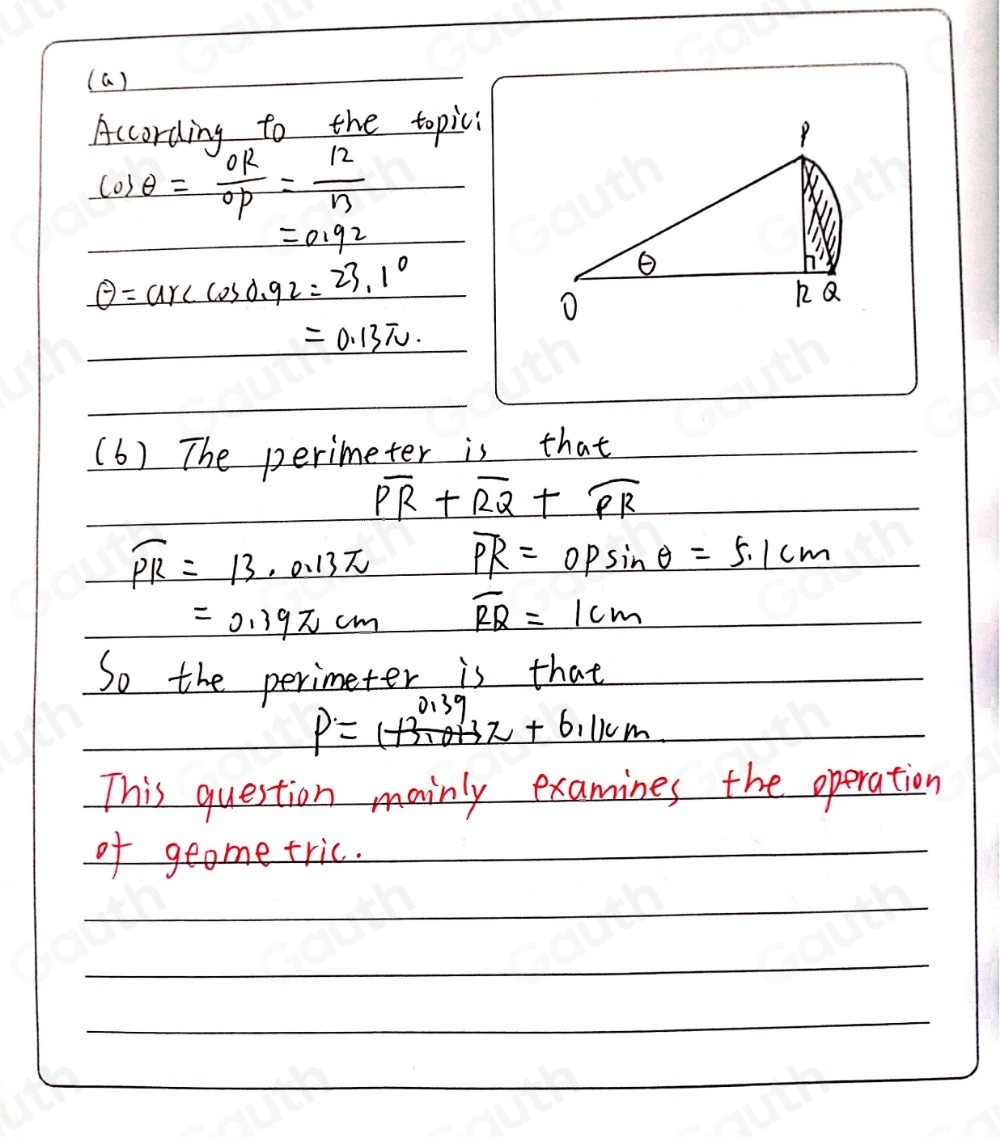 (a)
According to the topic:
cos θ = OR/OP = 12/13
= 0.92
θ = arc cos 0.92 = 23.1°
= 0.13π.
P
θ
O
R Q
(b) The perimeter is that
PR + RQ + PR
PR = 13 · 0.13π PR = OP sin θ = 5.1cm
= 0.39π cm RQ = 1cm
So the perimeter is that
0.39
P = (13.013π + 6.1)cm
This question mainly examines the operation
of geometric.
Gauth